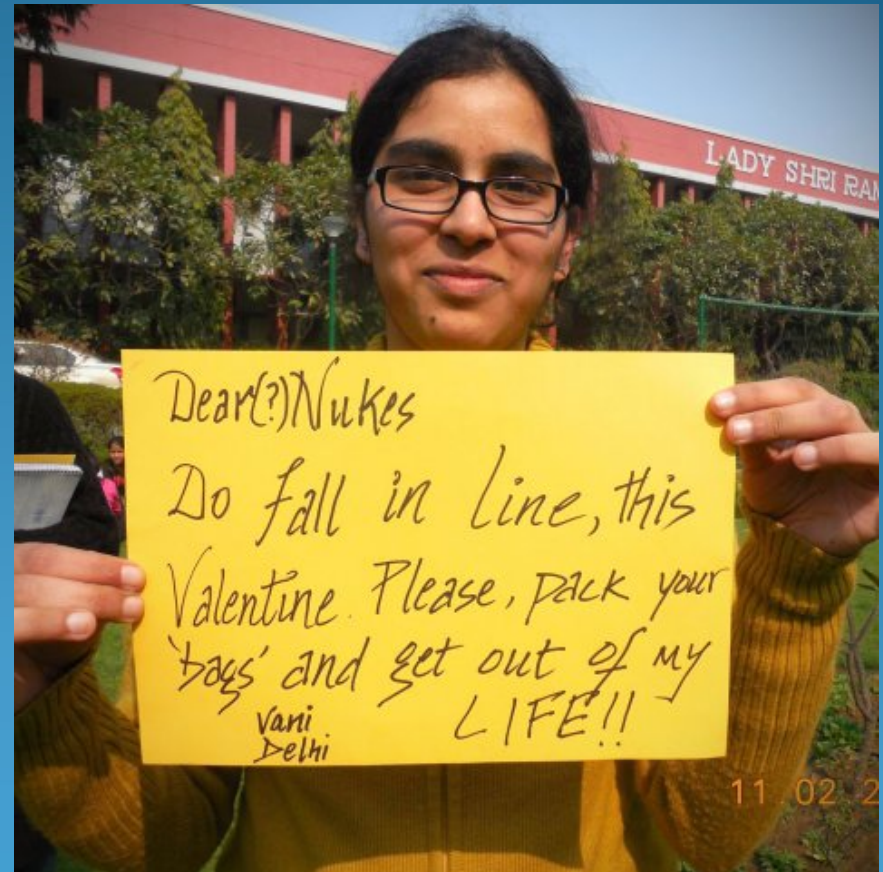 LADY SHRI RAM
Dear(?) Nukes
Do fall in line, this
Valentine. Please, pack your
'bags' and get out of my
LIFE!!
Vani
Delhi
11 02 2